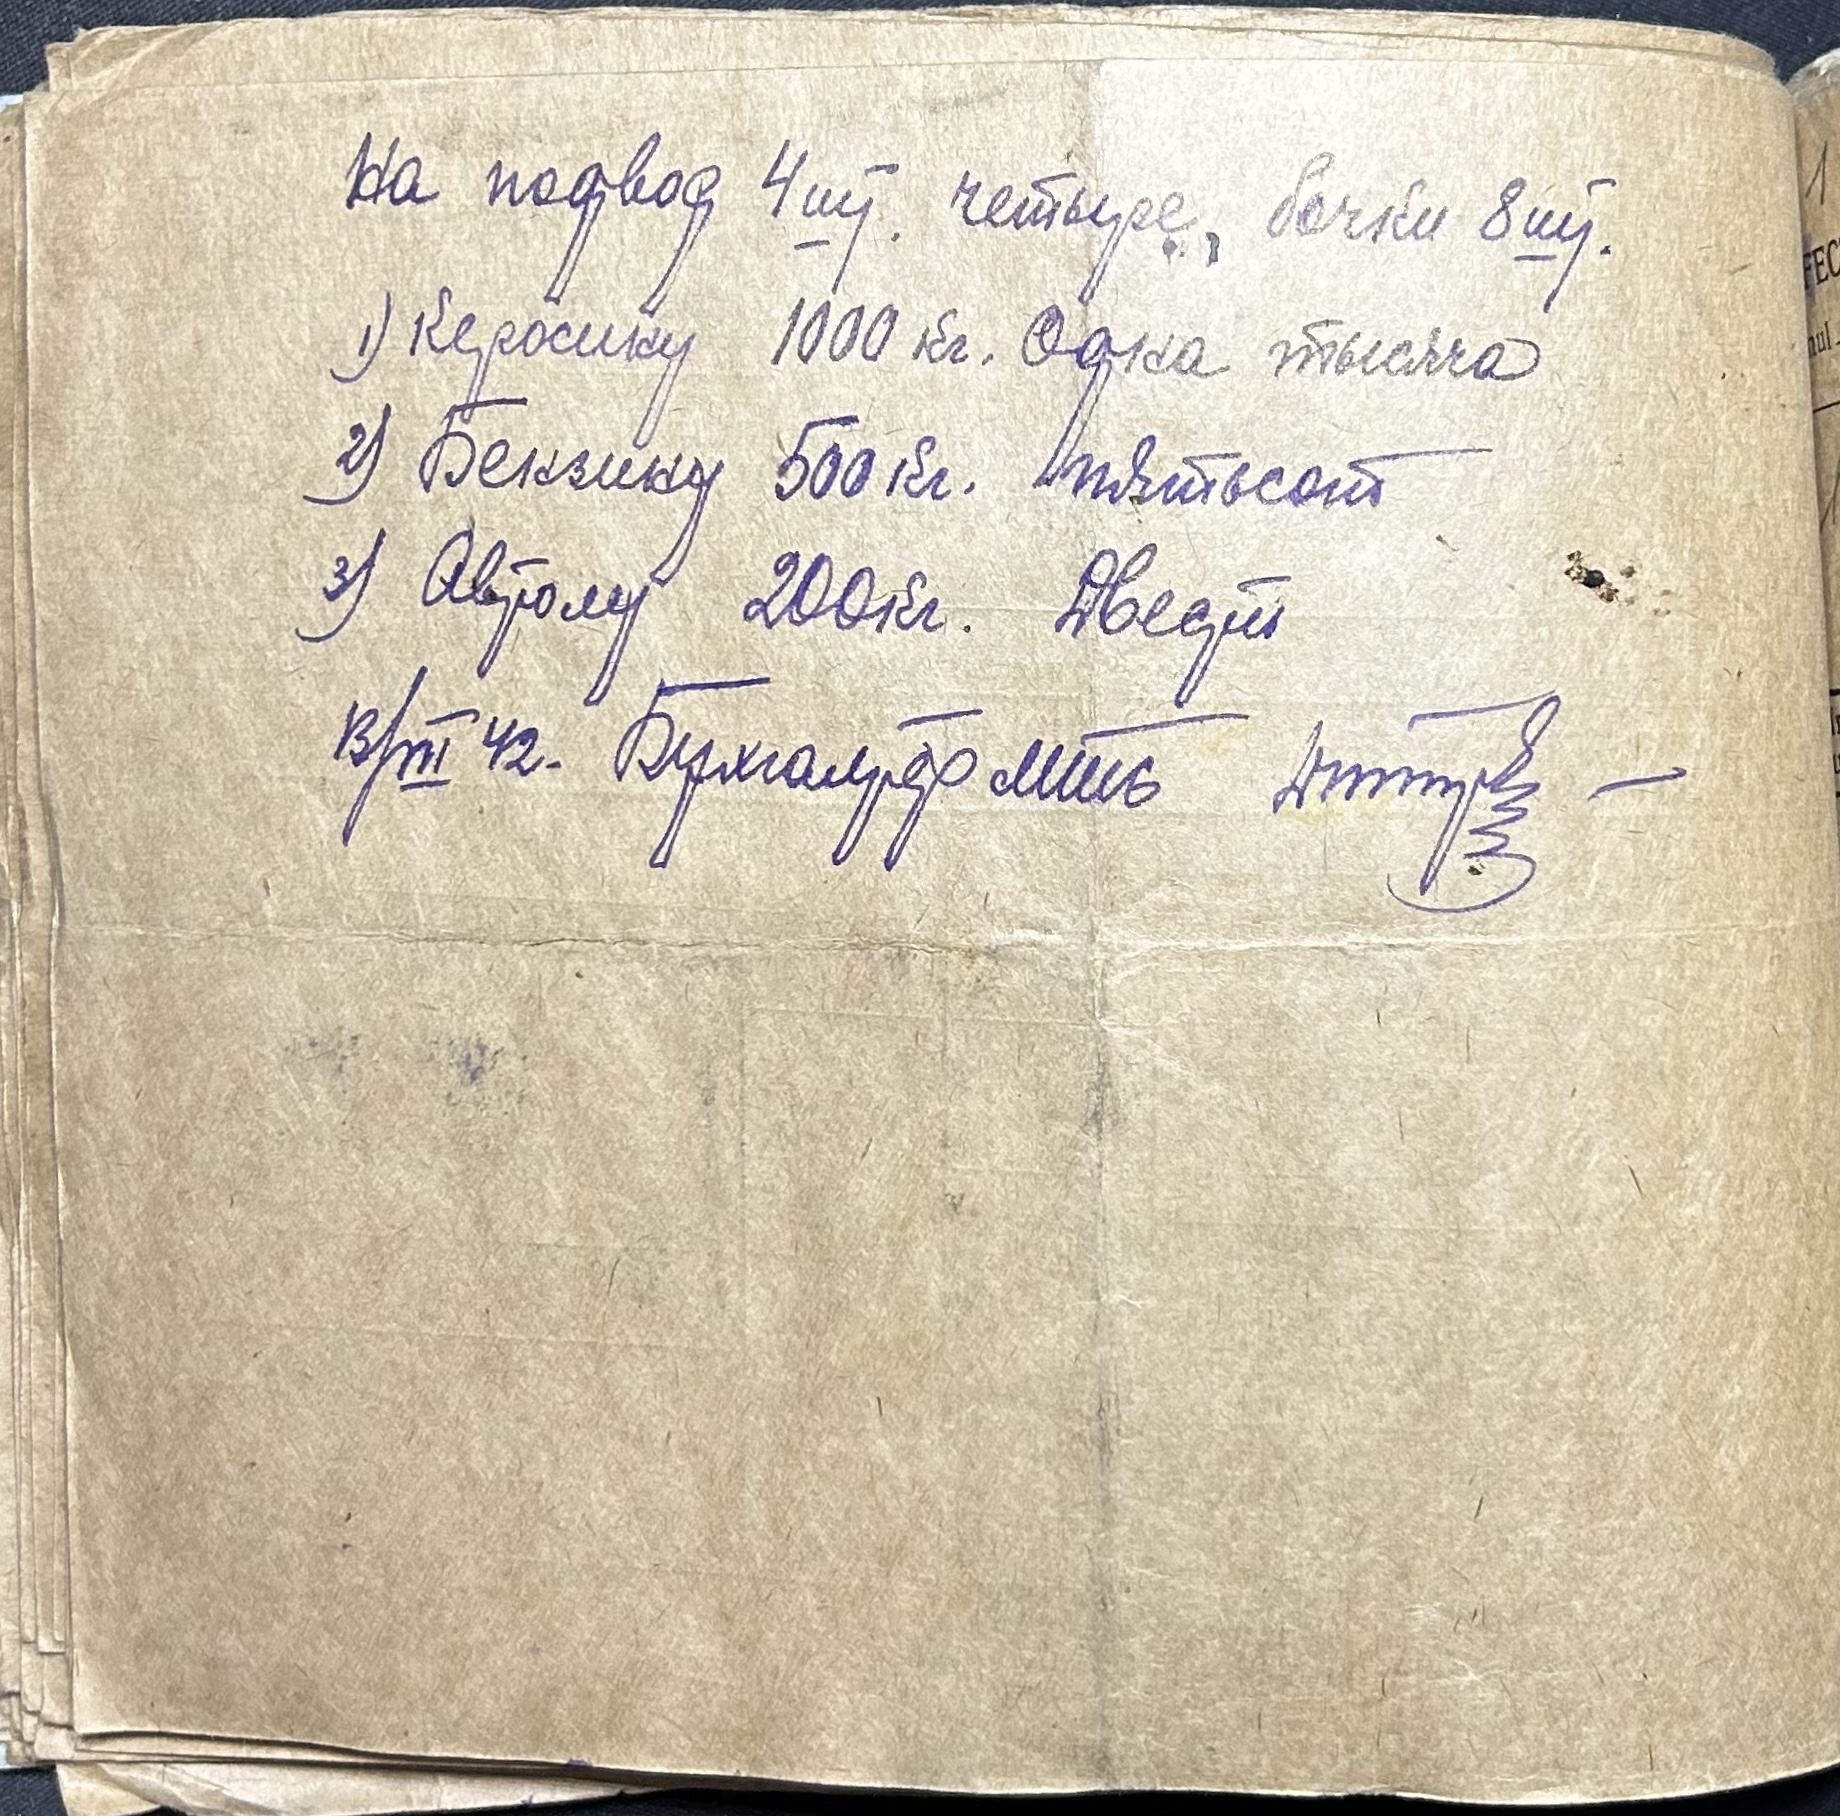 На подвод 4 шт. четыре, бочки 8 шт.
1) Керосину 1000 кг. Одна тысяча
2) Бензину 500 кг. пятьсот
3) Автолу 200 кг. Двести
/III 42. Бухгалтер МТС